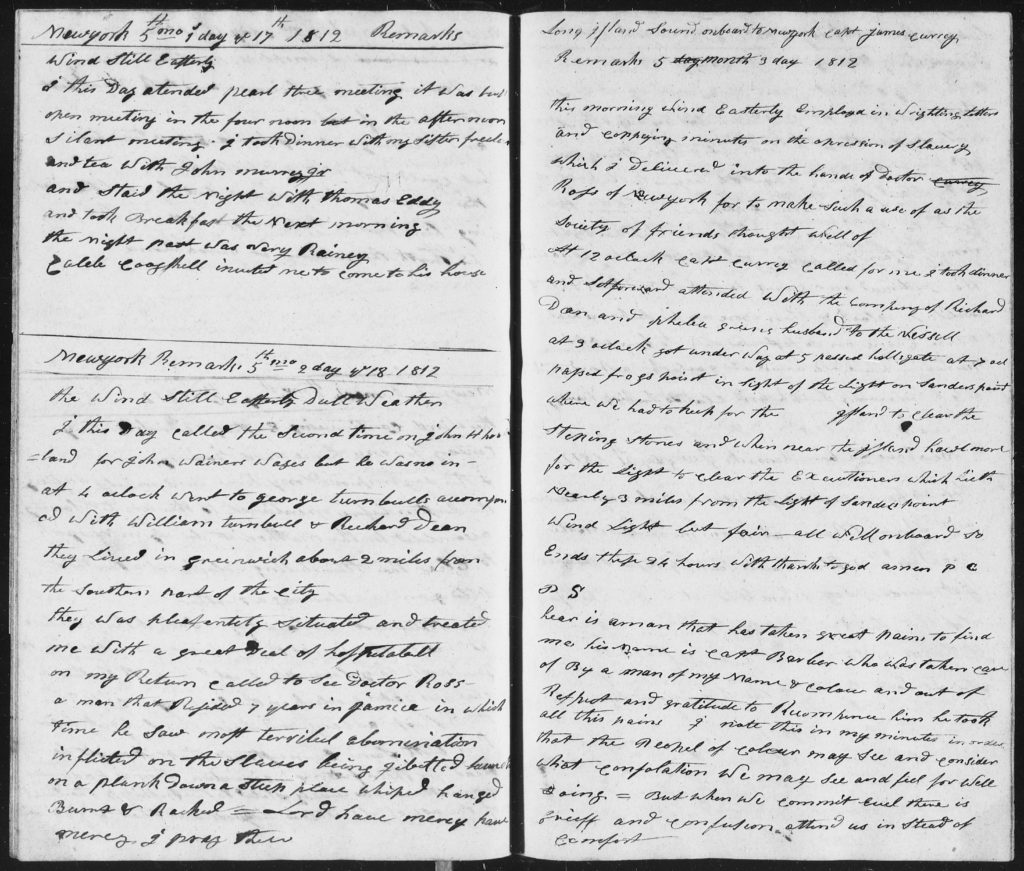 Newyork 5th mo 1 day & 17th 1812 Remarks
Wind Still Easterly
I this Day atended pearl stree meeting it was but
open meeting in the four noon but in the afternoon
Silant meeting. I took Dinner with my Sister
and tea With John murrey
and Staid the Night With thomas Eddy
and took Breakfast the Next morning
the night past was very Rainey
Caleb Coggshell invited me to come to his house
Newyork Remarks 5th mo 2 day & 18 1812
the Wind Still Easterly Dull Weather
I this Day called the Second time on John H how
=land for John Wainers Wages but he was no in-
at 4 aclock went to george turnbulls accompan
ed With William turnbull & Richard Dean
they Lived in greinwich about 2 miles from
the Southern part of the City
they was pleasentily Situated and treated
me With a great Deal of hospitaball
on my Return called to See Doctor Ross
a man that Resided 7 years in jamica in which
time he Saw most terribel abomination
inflicted on the Slaves being gibatted
on a plank down a Steep place whiped hanged
Burnt & Racked = Lord have mercy have
mercy I pray thee
Long island Sound onboard to Newyork capt james Currey
Remarks 5 day month 3 day 1812
this morning wind Easterly Employd in Wrighting letters
and coppying minutes on the opression of Slavery
which I Delivered into the hands of Doctor currey
Ross of Newyork for to make Such a use of as the
Society of friends thought Well of
At 12 oclack capt Currey called for me I took dinner
and Set forward attended With the company of Richard
Dean and phebea greens husband to the Vessell
at 3 aclack got under Way at 5 passed hellsgate at 7 acl
passed frogs point in sight of the Light on Sanders point
where We had to keep for the island to clear the
Steping Stones and when near the island hawl more
for the Light to clear the Exicutioners which Lieth
Nearly 3 miles from the Light of Sandes point
Wind Light but fair — all well onboard So
Ends these 24 hours With thanks to god amen P C
P S
hear is a man that has taken great pains to find
me his Name is capt Barber who was taken care
of By a man of my Name & colour and out of
Respect and gratitude to Recompence him he took
all this pains I note this in my minutes in order
that the Peopel of colour may See and consider
what consolation We may See and feel for Well
Doing = But when We commit Evel there is
grieff and confusion attend us in Stead of
comfort